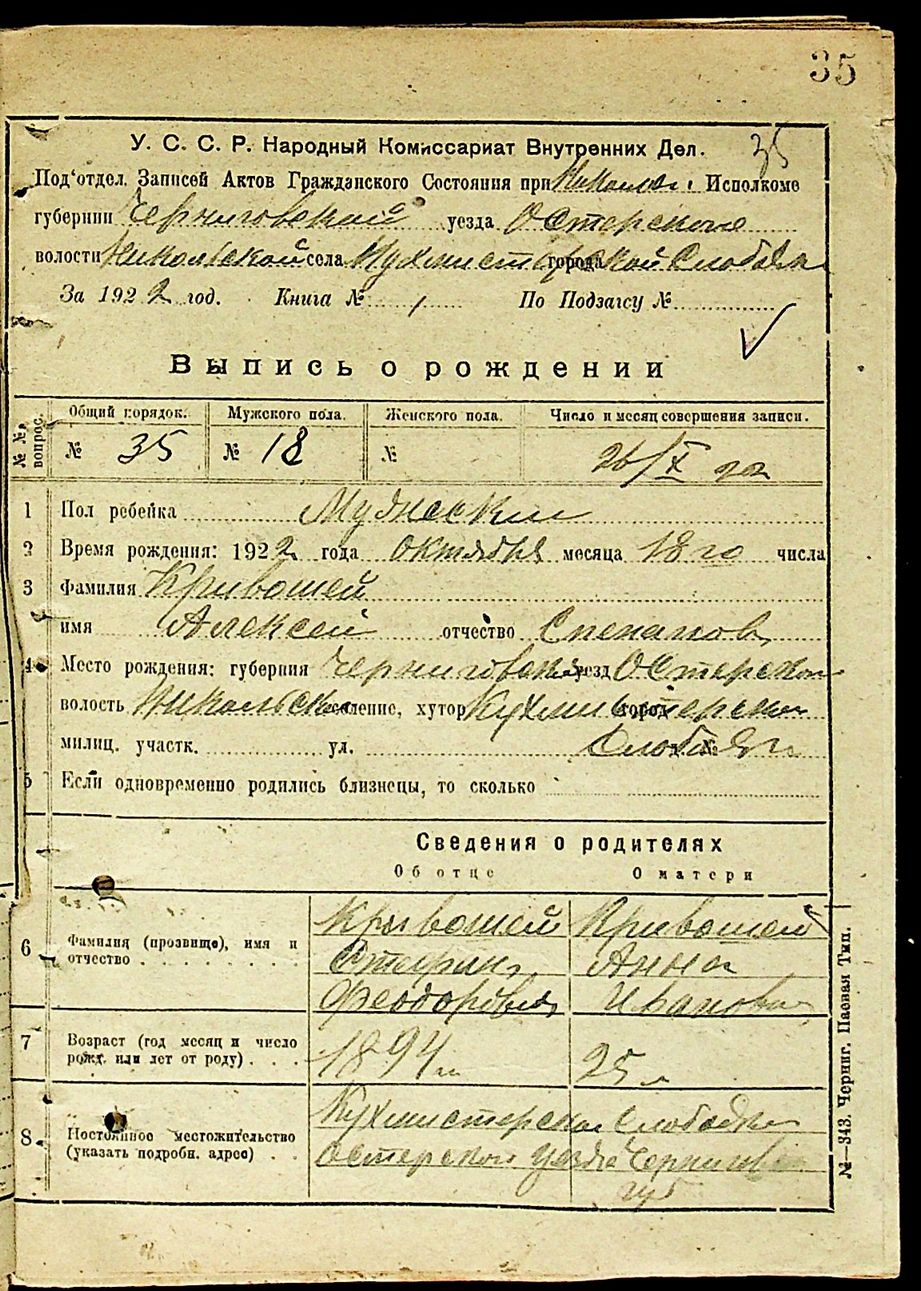 35
У. С. С. Р. Народный Комиссариат Внутренних Дел. 35
Под'отдел. Записей Актов Гражданского Состояния при Никольс. Исполкоме
губернии Черниговской уезда Остерского
волости Никольской села города Кухмистерской Слободки
За 1922 год. Книга № 1 По Подзагсу №
Выпись о рождении
№№ вопрос. Общий порядок. Мужского пола. Женского пола. Число и месяц совершения записи.
№ 35 № 18 № 26/X 22
1 Пол ребенка Мужеский
2 Время рождения: 1922 года октября месяца 18го числа
3 Фамилия Кривошей
имя Алексей отчество
4 Место рождения: губерния Черниговская уезд Остерской
волость Никольская селение, хутор, город Кухмистерская
милиц. участк. ул. № Слободка
5 Если одновременно родились близнецы, то сколько
Сведения о родителях
Об отце О матери
6 Фамилия (прозвище), имя и отчество Кривошей Кривошей
Анна
Феодоров Иванова
7 Возраст (год месяц и число рожд. или лет от роду) 1894 25 л
8 Постоянное местожительство (указать подробн. адрес) Кухмистерская Слободка
Остерского уезда Чернигов
губ
№—343. Черниг. Паевая Тип.